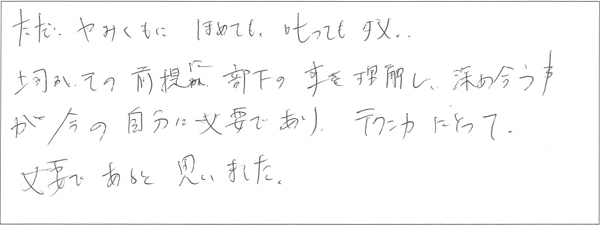 ただ、ヤみくもに ほめても、叱ってもダメ、
上司が、その前提に 部下の事を理解し、深め合う事
が 今の自分に必要であり、テクニカにとって、
必要であると思いました。